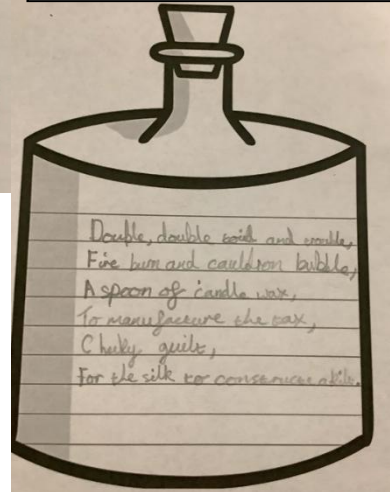 Double, double toil and trouble,
Fire burn and cauldron bubble,
A spoon of candle wax,
To manufacture the tax,
Cheeky guilt,
For the silk tor construct a kilt.